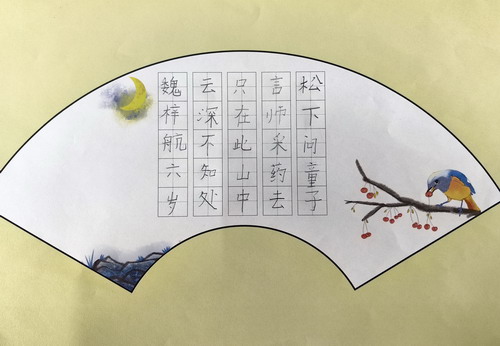 松下问童子
言师采药去
只在此山中
云深不知处
魏梓航六岁